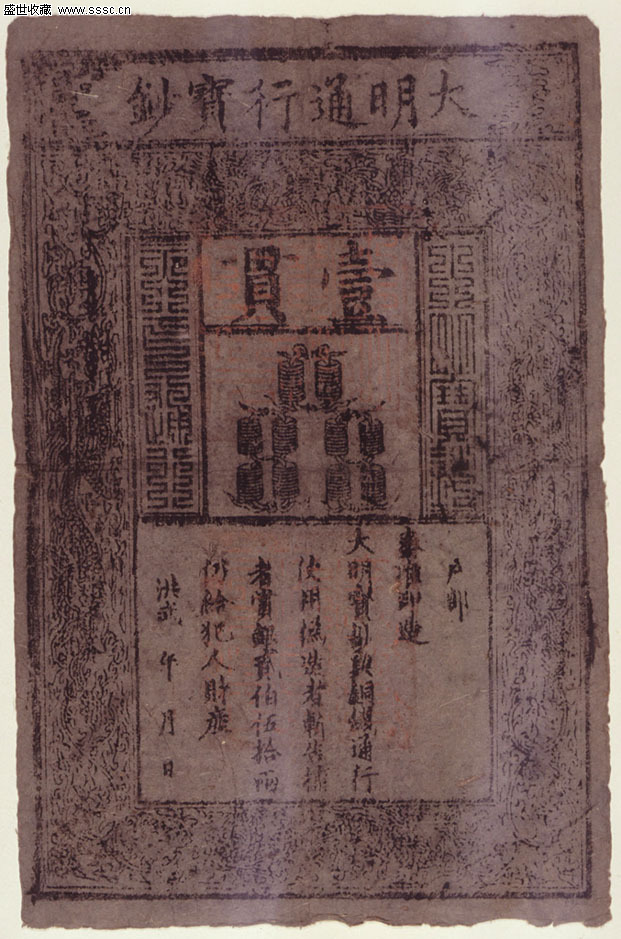 盛世收藏 www.sssc.cn
大明通行寶鈔
壹貫
大明寶鈔
天下通行
戶部
奏準印造
大明寶鈔與銅錢通行
使用偽造者斬告捕
者賞銀貳伯伍拾兩
仍給犯人財産
洪武 年 月 日